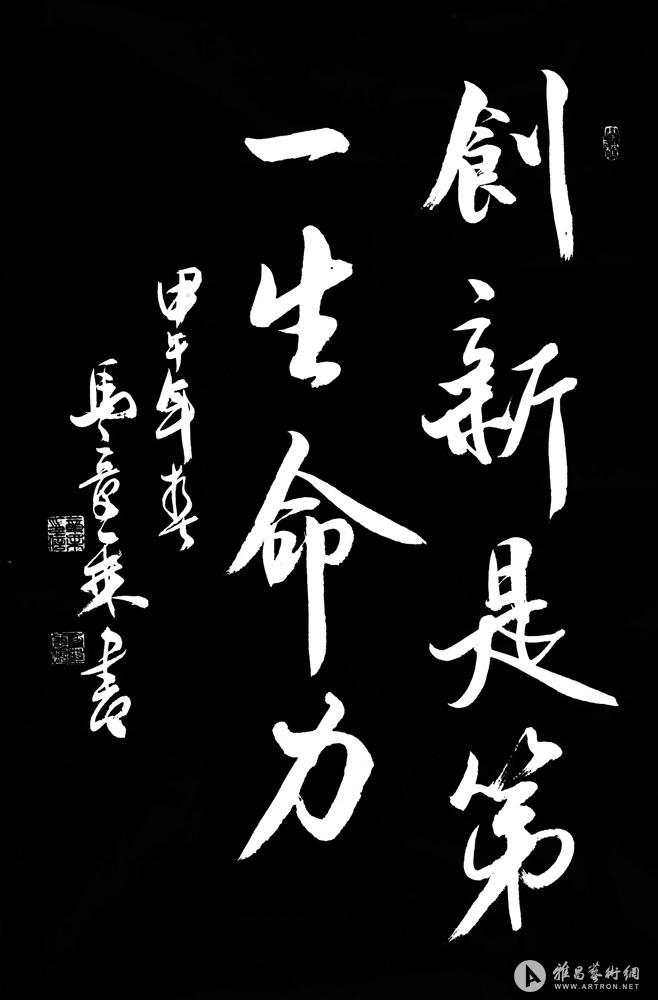 創新是第
一生命力
甲午年春
馬章乘書
雅昌藝術網
WWW.ARTRON.NET